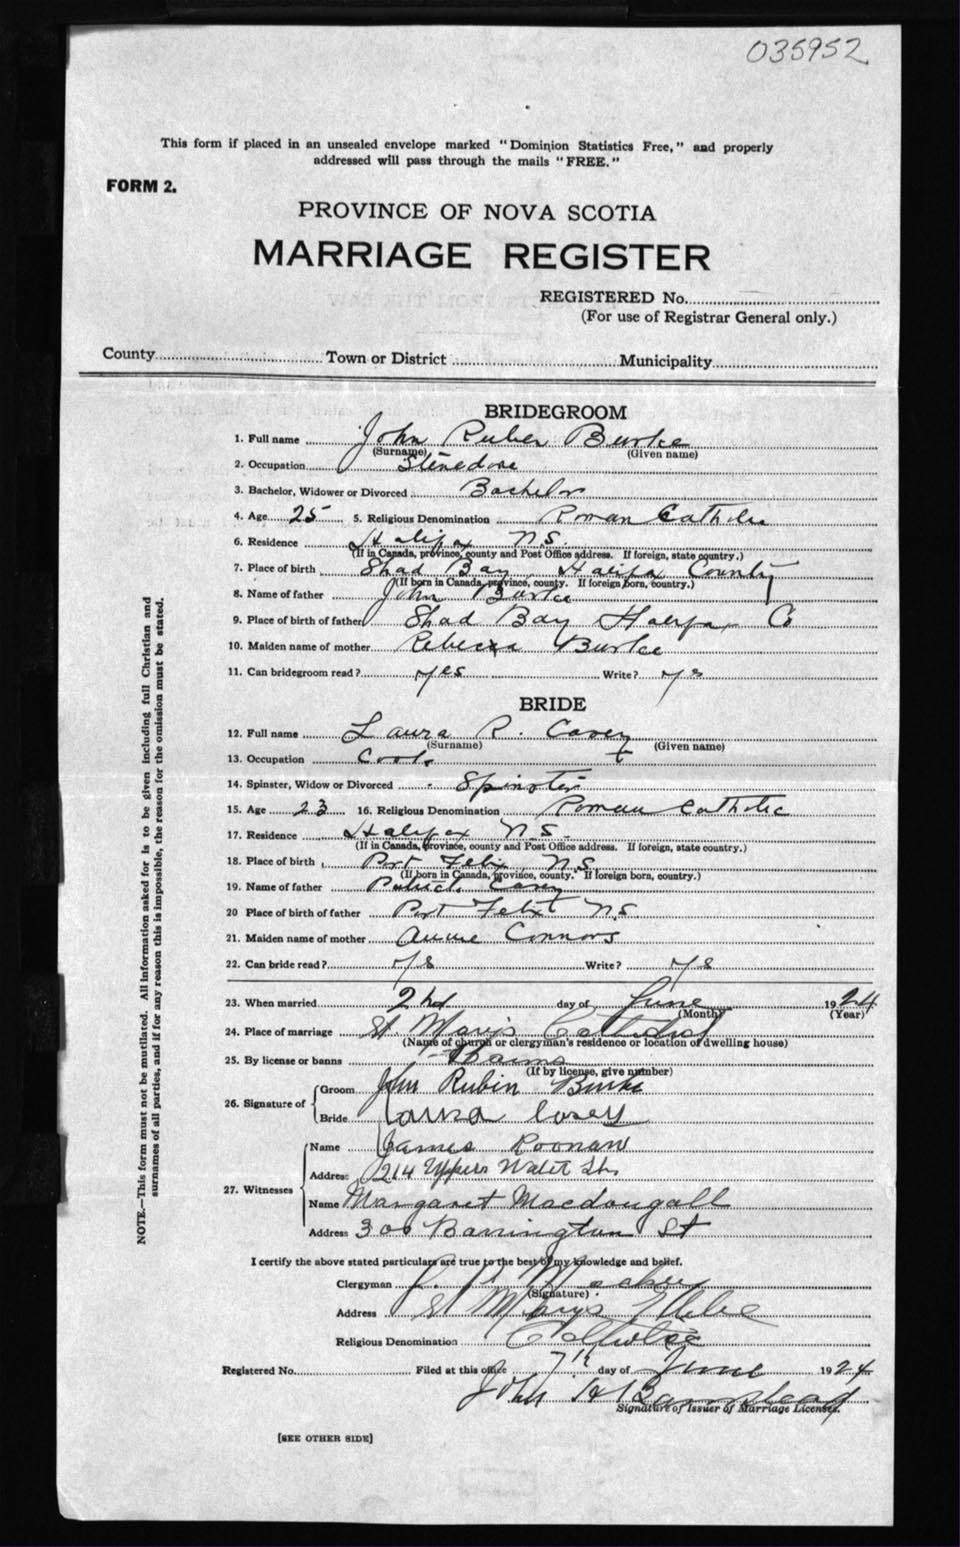 035952
This form if placed in an unsealed envelope marked "Dominion Statistics Free," and properly
addressed will pass through the mails "FREE."
FORM 2.
PROVINCE OF NOVA SCOTIA
MARRIAGE REGISTER
REGISTERED No.
(For use of Registrar General only.)
County Town or District Municipality
BRIDEGROOM
1. Full name John Ruben Burke
(Surname) (Given name)
2. Occupation Stevedore
3. Bachelor, Widower or Divorced Bachelor
4. Age 25 5. Religious Denomination Roman Catholic
6. Residence Halifax N.S.
(If in Canada, province, county and Post Office address. If foreign, state country.)
7. Place of birth Shad Bay Halifax County
(If born in Canada, province, county. If foreign born, country.)
8. Name of father John Burke
9. Place of birth of father Shad Bay Halifax Co
10. Maiden name of mother Rebecca Burke
11. Can bridegroom read? yes Write? yes
BRIDE
12. Full name Laura R. Casey
(Surname) (Given name)
13. Occupation Cook
14. Spinster, Widow or Divorced Spinster
15. Age 23 16. Religious Denomination Roman Catholic
17. Residence Halifax N.S.
(If in Canada, province, county and Post Office address. If foreign, state country.)
18. Place of birth Port Felix N.S
(If born in Canada, province, county. If foreign born, country.)
19. Name of father Patrick Casey
20 Place of birth of father Port Felix N.S
21. Maiden name of mother Annie Connors
22. Can bride read? yes Write? yes
23. When married 2nd day of June 1924
(Month) (Year)
24. Place of marriage St. Mary's Cathedral
(Name of church or clergyman's residence or location of dwelling house)
25. By license or banns Banns
(If by license, give number)
26. Signature of Groom John Rubin Burke
Bride Laura Casey
27. Witnesses Name James Noonan
Address 214 Upper Water St
Name Margaret Macdougall
Address 300 Barrington St
I certify the above stated particulars are true to the best of my knowledge and belief.
Clergyman
(Signature)
Address St Marys Glebe
Religious Denomination Catholic
Registered No. Filed at this office 7th day of June 1924
John H Barnstead
Signature of Issuer of Marriage Licenses.
[SEE OTHER SIDE]
NOTE.—This form must not be mutilated. All information asked for is to be given including full Christian and
surnames of all parties, and if for any reason this is impossible, the reason for the omission must be stated.